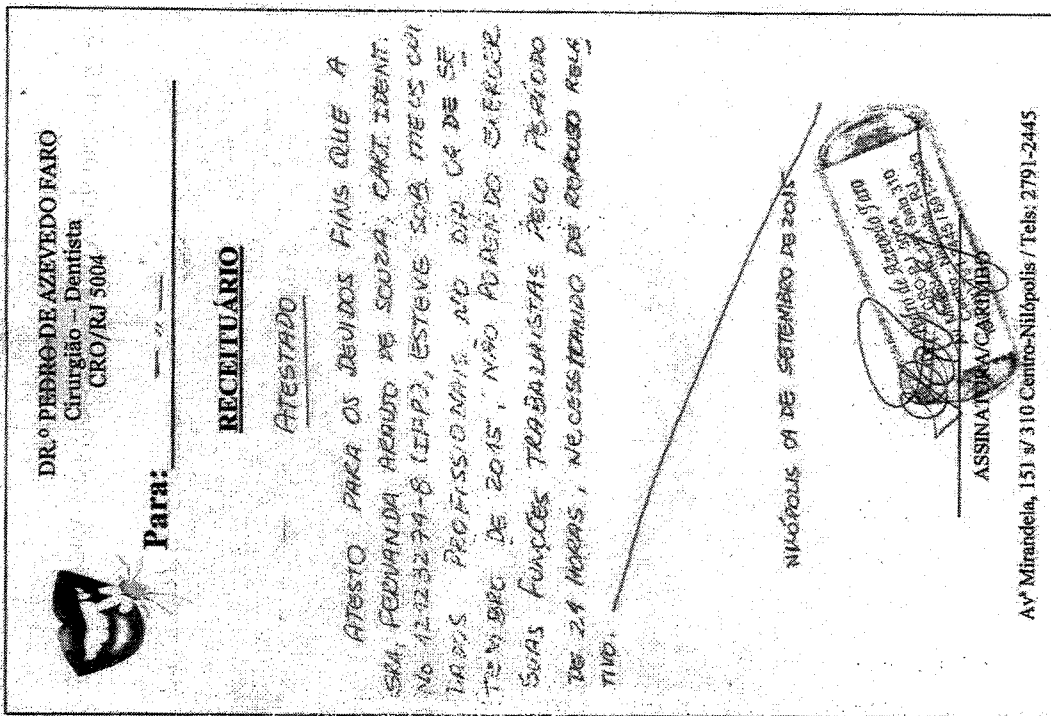 DR.º PEDRO DE AZEVEDO FARO
Cirurgião – Dentista
CRO/RJ 5004
Para: — " —
RECEITUÁRIO
ATESTADO
ATESTO PARA OS DEVIDOS FINS QUE A
SRA, FERNANDA ARAUJO DE SOUZA, CART. IDENT.
No (IFP), ESTEVE SOB MEUS CUI
DADOS PROFISSIONAIS NO DIA DE SE
TEMBRO DE 2015, NÃO PODENDO EXERCER
SUAS FUNÇÕES TRABALHISTAS PELO PERÍODO
DE 24 HORAS, NECESSITANDO DE REPOUSO RELA
TIVO.
NILÓPOLIS DE SETEMBRO DE 2015
de Azevedo Faro
Sala 310
ASSINATURA/CARIMBO
Avª Mirandela, 151 s/ 310 Centro-Nilópolis / Tels: 2791-2445